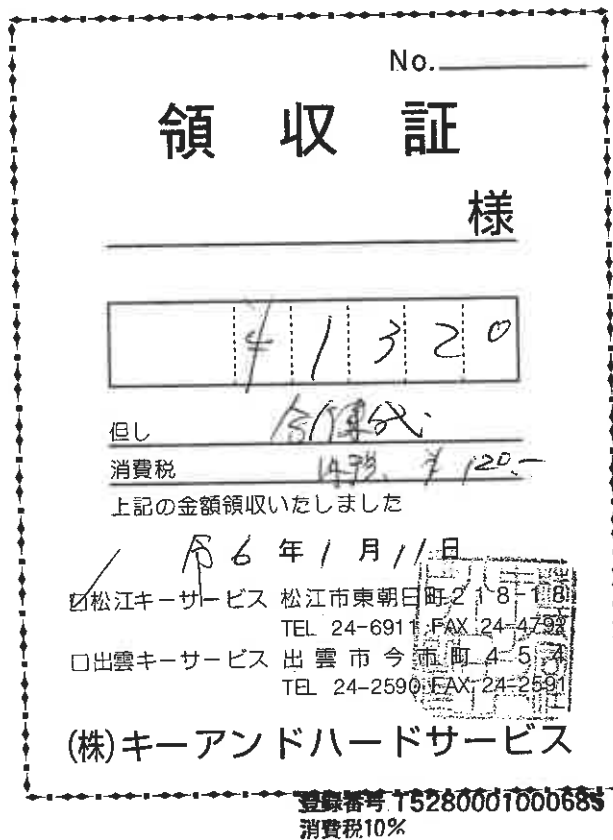 No.
領収証
様
¥1320
但し 合鍵代
消費税 内税 ¥120.-
上記の金額領収いたしました
令6年1月11日
☑松江キーサービス 松江市東朝日町218-18
TEL 24-6911 FAX 24-4792
□出雲キーサービス 出雲市今市町454
TEL 24-2590 FAX 24-2591
(株)キーアンドハードサービス
登録番号 T5280001000685
消費税10%